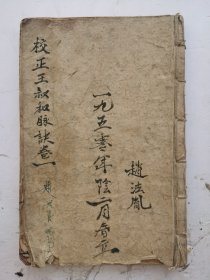 校正王叔和脉訣卷一
一九五零年陰二月
趙法胤